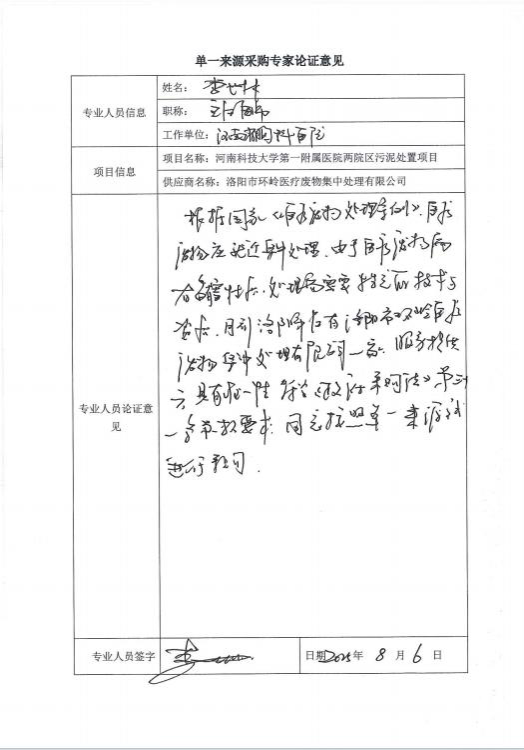 单一来源采购专家论证意见
专业人员信息
姓名：李
职称：
工作单位：河南 医院
项目信息
项目名称：河南科技大学第一附属医院两院区污泥处置项目
供应商名称：洛阳市环岭医疗废物集中处理有限公司
专业人员论证意见
根据国家《医疗废物处理条例》，医疗
废物应就近集中处理，由于医疗废物
处理需要特定的技术与
，目前洛阳 有洛阳市环岭医疗
废物集中处理有限公司一家，服务提供
具有唯一性，符合《政府采购法》第三十
一条 款要求，同意按照单一来源方式
进行采购。
专业人员签字
李
日期：2025年 8 月 6 日